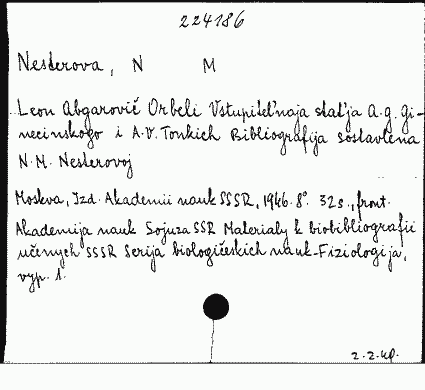 224186
Nesterova, N M
Leon Abgarovič Orbeli Vstupitel'naja stat'ja A.G. Gi-
necinskogo i A.V. Tonkich Bibliografija sostavlena
N.M. Nesterovoj
Moskva, Izd. Akademii nauk SSSR, 1946. 8°. 32s., front.
Akademija nauk Sojuza SSR Materialy k biobibliografii
učenych SSSR Serija biologičeskich nauk-Fiziologija,
vyp. 1.